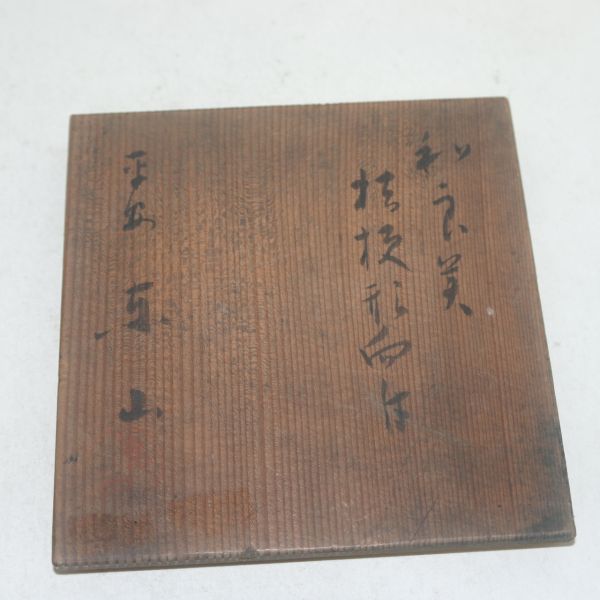 和良美
桔梗形向付
平安 東山